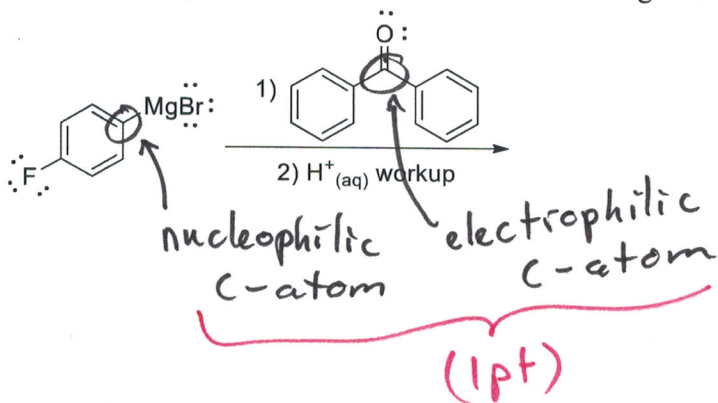 O
1)
MgBr
F
2) H+(aq) workup
nucleophilic
C-atom
electrophilic
C-atom
(1pt)